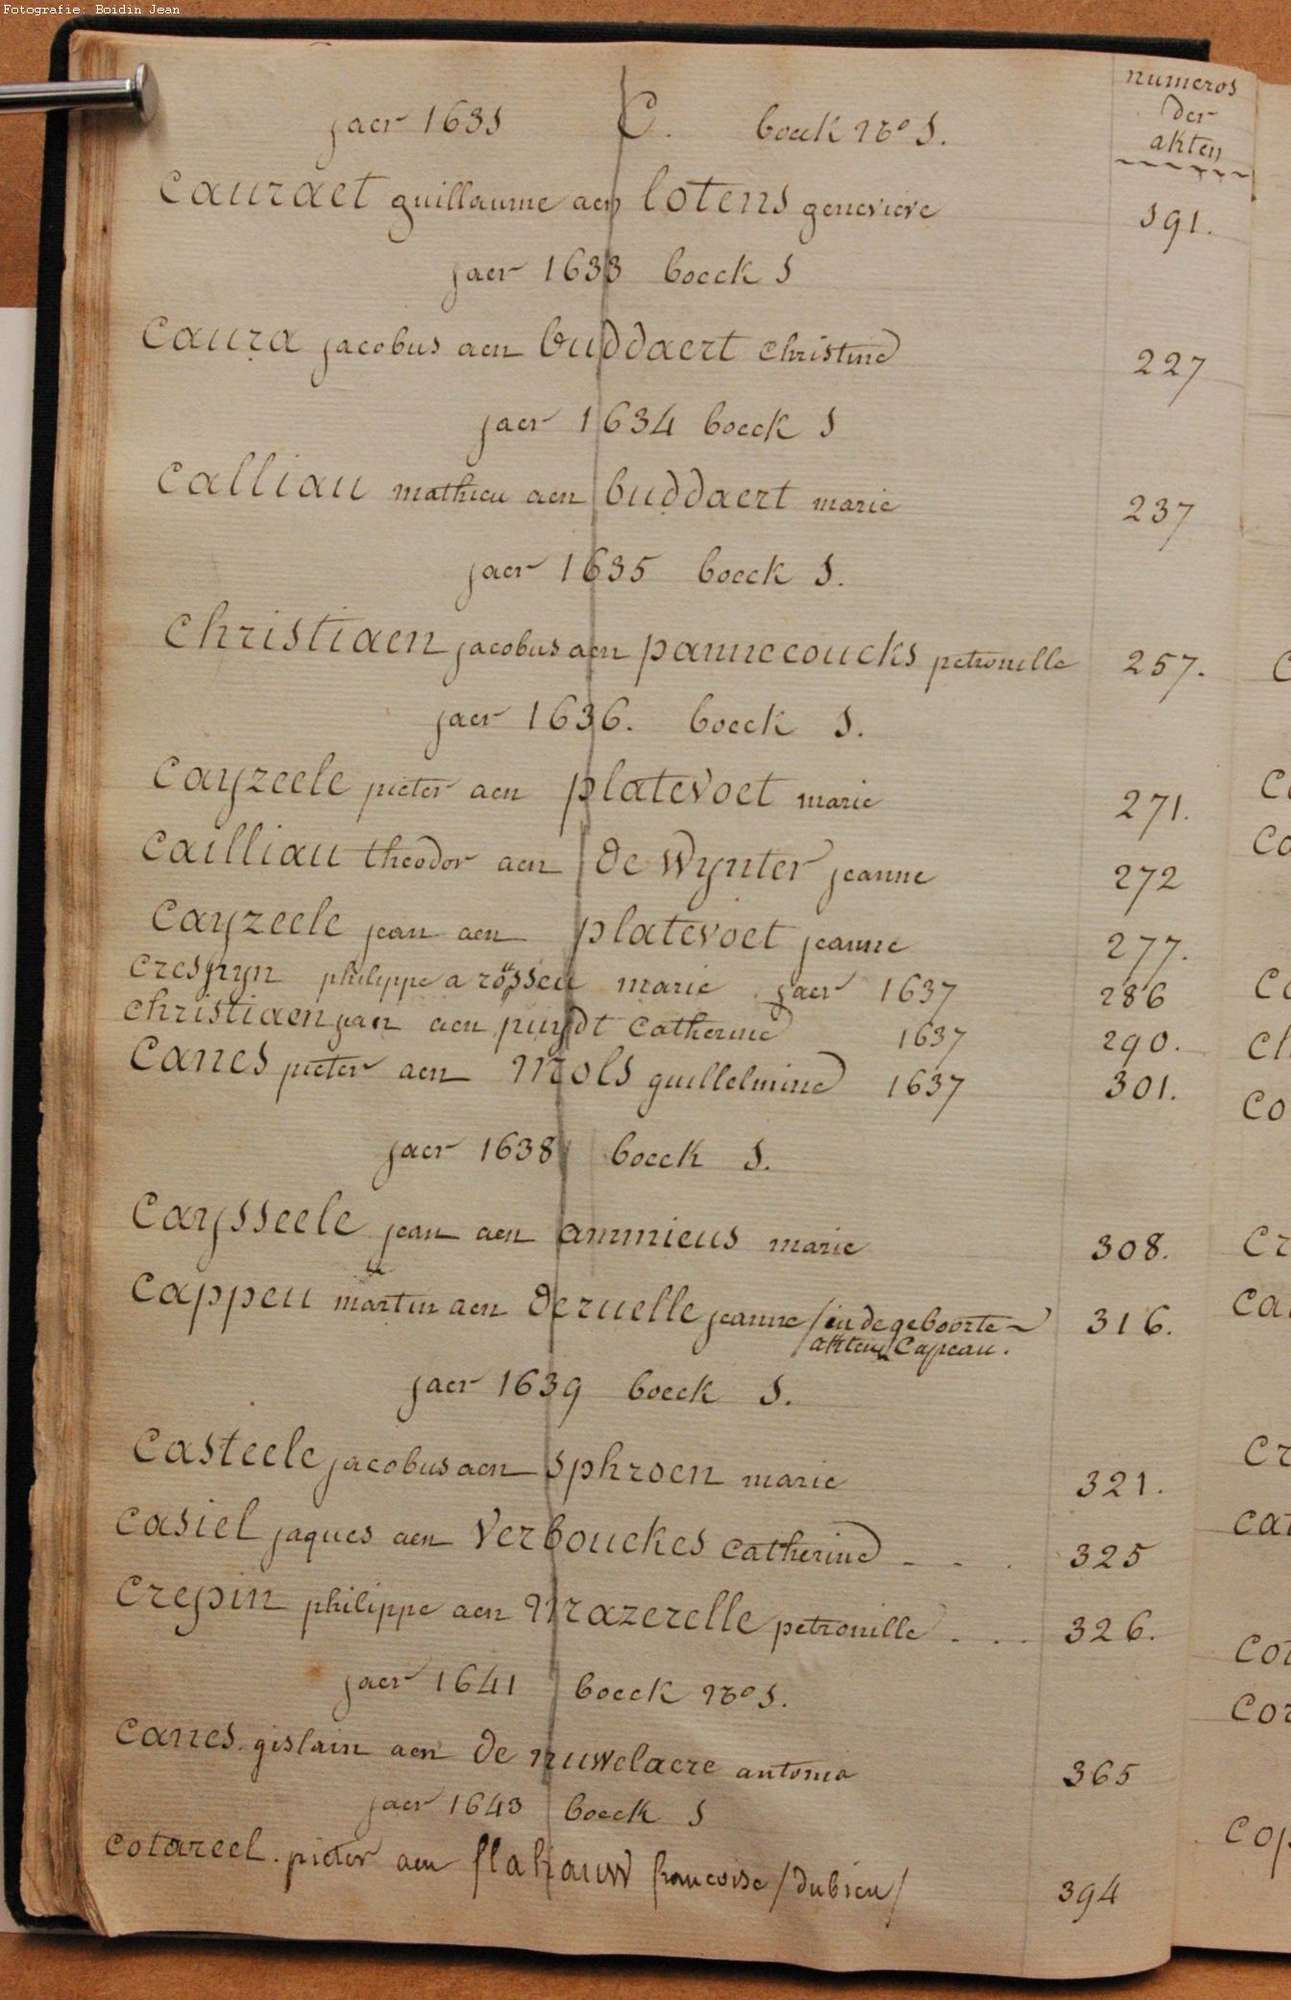 Fotografie: Boidin Jean
numeros
der
akten
jaer 1631 C. boeck No 1.
Cauraet guillaume aen lotens genevieve 191.
jaer 1633 boeck 1
Caura jacobus aen buddaert Christine 227
jaer 1634 boeck 1
Calliau mathieu aen buddaert marie 237
jaer 1635 boeck 1.
Christiaen jacobus aen pannecoucks petronille 257.
jaer 1636. boeck 1.
Cayzeele pieter aen platevoet marie 271.
Cailliau theodor aen de Wynter jeanne 272
Cayzeele jean aen platevoet jeanne 277.
Crespyn philippe a marie jaer 1637 286
Christiaen jan aen puydt Catherine 1637 290.
Canes pieter aen Mols guillelmine 1637 301.
jaer 1638 boeck 1.
Caysseele jean aen ammieus marie 308.
Cappeu martin aen deruelle jeanne / in de geboorte
akten Capeau. 316.
jaer 1639 boeck 1.
Casteele jacobus aen Sphroen marie 321.
Casiel jaques aen Verbouckes Catherine - - . 325
Crepin philippe aen Mazerelle petronille . . . 326.
jaer 1641 boeck No 1.
Canes. gislain aen de nuwelaere antonia 365
jaer 1643 boeck 1
Cotareel. pieter aen flahauw francoise / dubieu / 394
C
Ca
Ca
Ca
Ch
Co
Cr
Ca
Cr
Ca
Cot
Cor
Cop